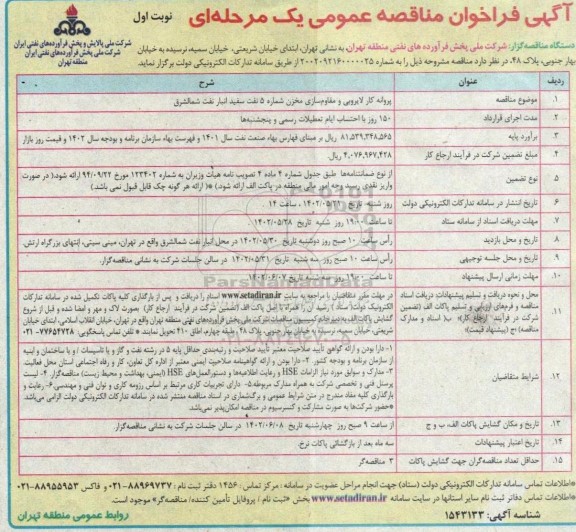 آگهی فراخوان مناقصه عمومی یک مرحله‌ای
نوبت اول
شرکت ملی پالایش و پخش فرآورده‌های نفتی ایران
شرکت ملی پخش فرآورده‌های نفتی ایران
منطقه تهران
دستگاه مناقصه‌گزار: شرکت ملی پخش فرآورده های نفتی منطقه تهران، به نشانی تهران، ابتدای خیابان شریعتی، خیابان سمیه، نرسیده به خیابان
بهار جنوبی، پلاک ۴۸، در نظر دارد مناقصه مشروحه ذیل را به شماره ۲۰۰۲۰۹۲۱۶۰۰۰۰۰۲۵ از طریق سامانه تدارکات الکترونیکی دولت برگزار نماید.
ردیف عنوان شرح
۱. موضوع مناقصه پروانه کار لایروبی و مقاوم‌سازی مخزن شماره ۵ نفت سفید انبار نفت شمالشرق
۲. مدت اجرای قرارداد ۱۵۰ روز با احتساب ایام تعطیلات رسمی و پنجشنبه‌ها
۳. برآورد پایه ۸۱,۵۳۹,۳۴۸,۵۶۵ ریال بر مبنای فهارس بهاء صنعت نفت سال ۱۴۰۱ و فهرست بهاء سازمان برنامه و بودجه سال ۱۴۰۲ و قیمت روز بازار
۴. مبلغ تضمین شرکت در فرآیند ارجاع کار ۴,۰۷۶,۹۶۷,۴۲۸ ریال
۵. نوع تضمین از نوع ضمانتنامه‌ها طبق جدول شماره ۴ ماده ۴ تصویب نامه هیأت وزیران به شماره ۱۲۳۴۰۲ مورخ ۹۴/۰۹/۲۲ ارائه شود.( در صورت
واریز نقدی رسید وجه امور مالی منطقه در پاکت الف ارائه شود.) *( ارائه هر گونه چک قابل قبول نمی باشد.)
۶ تاریخ انتشار در سامانه تدارکات الکترونیکی دولت روز شنبه تاریخ ۱۴۰۲/۰۵/۲۱ ، ساعت ۱۴
۷ مهلت دریافت اسناد از سامانه ستاد تا ساعت ۱۹:۰۰ روز شنبه تاریخ ۱۴۰۲/۰۵/۲۸
۸ تاریخ و محل بازدید رأس ساعت ۱۰ صبح روز دوشنبه تاریخ ۱۴۰۲/۰۵/۳۰ در محل انبار نفت شمالشرق واقع در تهران، مینی سیتی، انتهای بزرگراه ارتش.
۹ تاریخ و محل جلسه توجیهی رأس ساعت ۱۰ صبح روز سه شنبه تاریخ ۱۴۰۲/۰۵/۳۱ در سالن جلسات شرکت به نشانی مناقصه‌گزار.
۱۰. مهلت زمانی ارسال پیشنهاد تا ساعت ۱۹:۰۰ روز سه شنبه تاریخ ۱۴۰۲/۰۶/۰۷
۱۱. محل و نحوه دریافت و تسلیم پیشنهادات دریافت اسناد
مناقصه و فرم‌های ارزیابی و تسلیم پاکات الف (تضمین
شرکت در فرآیند ارجاع کار) ب( اسناد و مدارک
مناقصه) ج (پیشنهاد قیمت)
در مهلت مقرر متقاضیان با مراجعه به سایت www.setadiran.ir اسناد را دریافت و پس از بارگذاری کلیه پاکات تکمیل شده در سامانه تدارکات
الکترونیک دولت( ستاد ) رسید آن را همراه با اصل پاکت الف (تضمین شرکت در فرآیند ارجاع کار) بصورت لاک و مهر و امضا شده و قبل از شروع
گشایش پاکات الف، به دبیرخانه کمیسیون مناقصات شرکت ملی پخش فرآورده‌های نفتی منطقه تهران واقع در تهران، خیابان انقلاب اسلامی، ابتدای خیابان
شریعتی، خیابان سمیه، نرسیده به خیابان بهار جنوبی، پلاک ۴۸، طبقه چهارم، اطاق ۴۱۰ تحویل نمایند. * تلفن تماس پاسخگویی: ۷۷۶۵۴۷۲۸-۰۲۱
۱۲. شرایط متقاضیان ۱- دارا بودن و ارائه گواهی تأیید صلاحیت معتبر تأیید صلاحیت و رتبه‌بندی حداقل پایه ۵ در رشته نفت و گاز و یا تأسیسات / و یا ساختمان و ابنیه
از سازمان برنامه و بودجه کشور. ۲- دارا بودن و ارائه گواهینامه صلاحیت ایمنی معتبر از اداره کل تعاون، کار و رفاه اجتماعی استان محل فعالیت
۳- مدارک و سوابق مورد نیاز الزامات HSE و رعایت اطلاعیه‌ها و دستورالعمل‌های HSE (ایمنی، بهداشت و محیط زیست) مناقصه‌گزار. ۴- لیست
پرسنل فنی و تخصصی شرکت به همراه مدارک مربوطه.۵- دارای تجربیات کاری مرتبط بر اساس رزومه کاری و توان فنی و مهندسی ۶- رعایت و
بارگذاری کلیه مفاد مندرج در متن شرایط عمومی و برگشماری در اسناد مناقصه منتشر شده در سامانه تدارکات الکترونیک دولت الزامی می‌باشد.
*حضور شرکت‌ها به صورت مشارکت و کنسرسیوم در مناقصه امکان‌پذیر نمی‌باشد.
۱۳. تاریخ و مکان گشایش پاکات الف، ب و ج از ساعت ۹ صبح روز چهارشنبه تاریخ ۱۴۰۲/۰۶/۰۸ در سالن جلسات شرکت به نشانی مناقصه‌گزار.
۱۴. تاریخ اعتبار پیشنهادات سه ماه بعد از بازگشائی پاکات نرخ.
۱۵. حداقل تعداد مناقصه‌گران جهت گشایش پاکات ۳ مناقصه‌گر
*اطلاعات تماس سامانه تدارکات الکترونیکی دولت (ستاد) جهت انجام مراحل عضویت در سامانه: مرکز تماس: ۱۴۵۶ دفتر ثبت نام : ۸۸۹۶۹۷۳۷-۰۲۱ و فاکس ۸۸۹۵۵۹۵۳-۰۲۱
*اطلاعات تماس دفاتر ثبت نام سایر استانها در سایت سامانه www.setadiran.ir بخش «ثبت نام / پروفایل تأمین کننده/ مناقصه‌گر» موجود است.
شناسه آگهی: ۱۵۴۳۱۳۳
روابط عمومی منطقه تهران